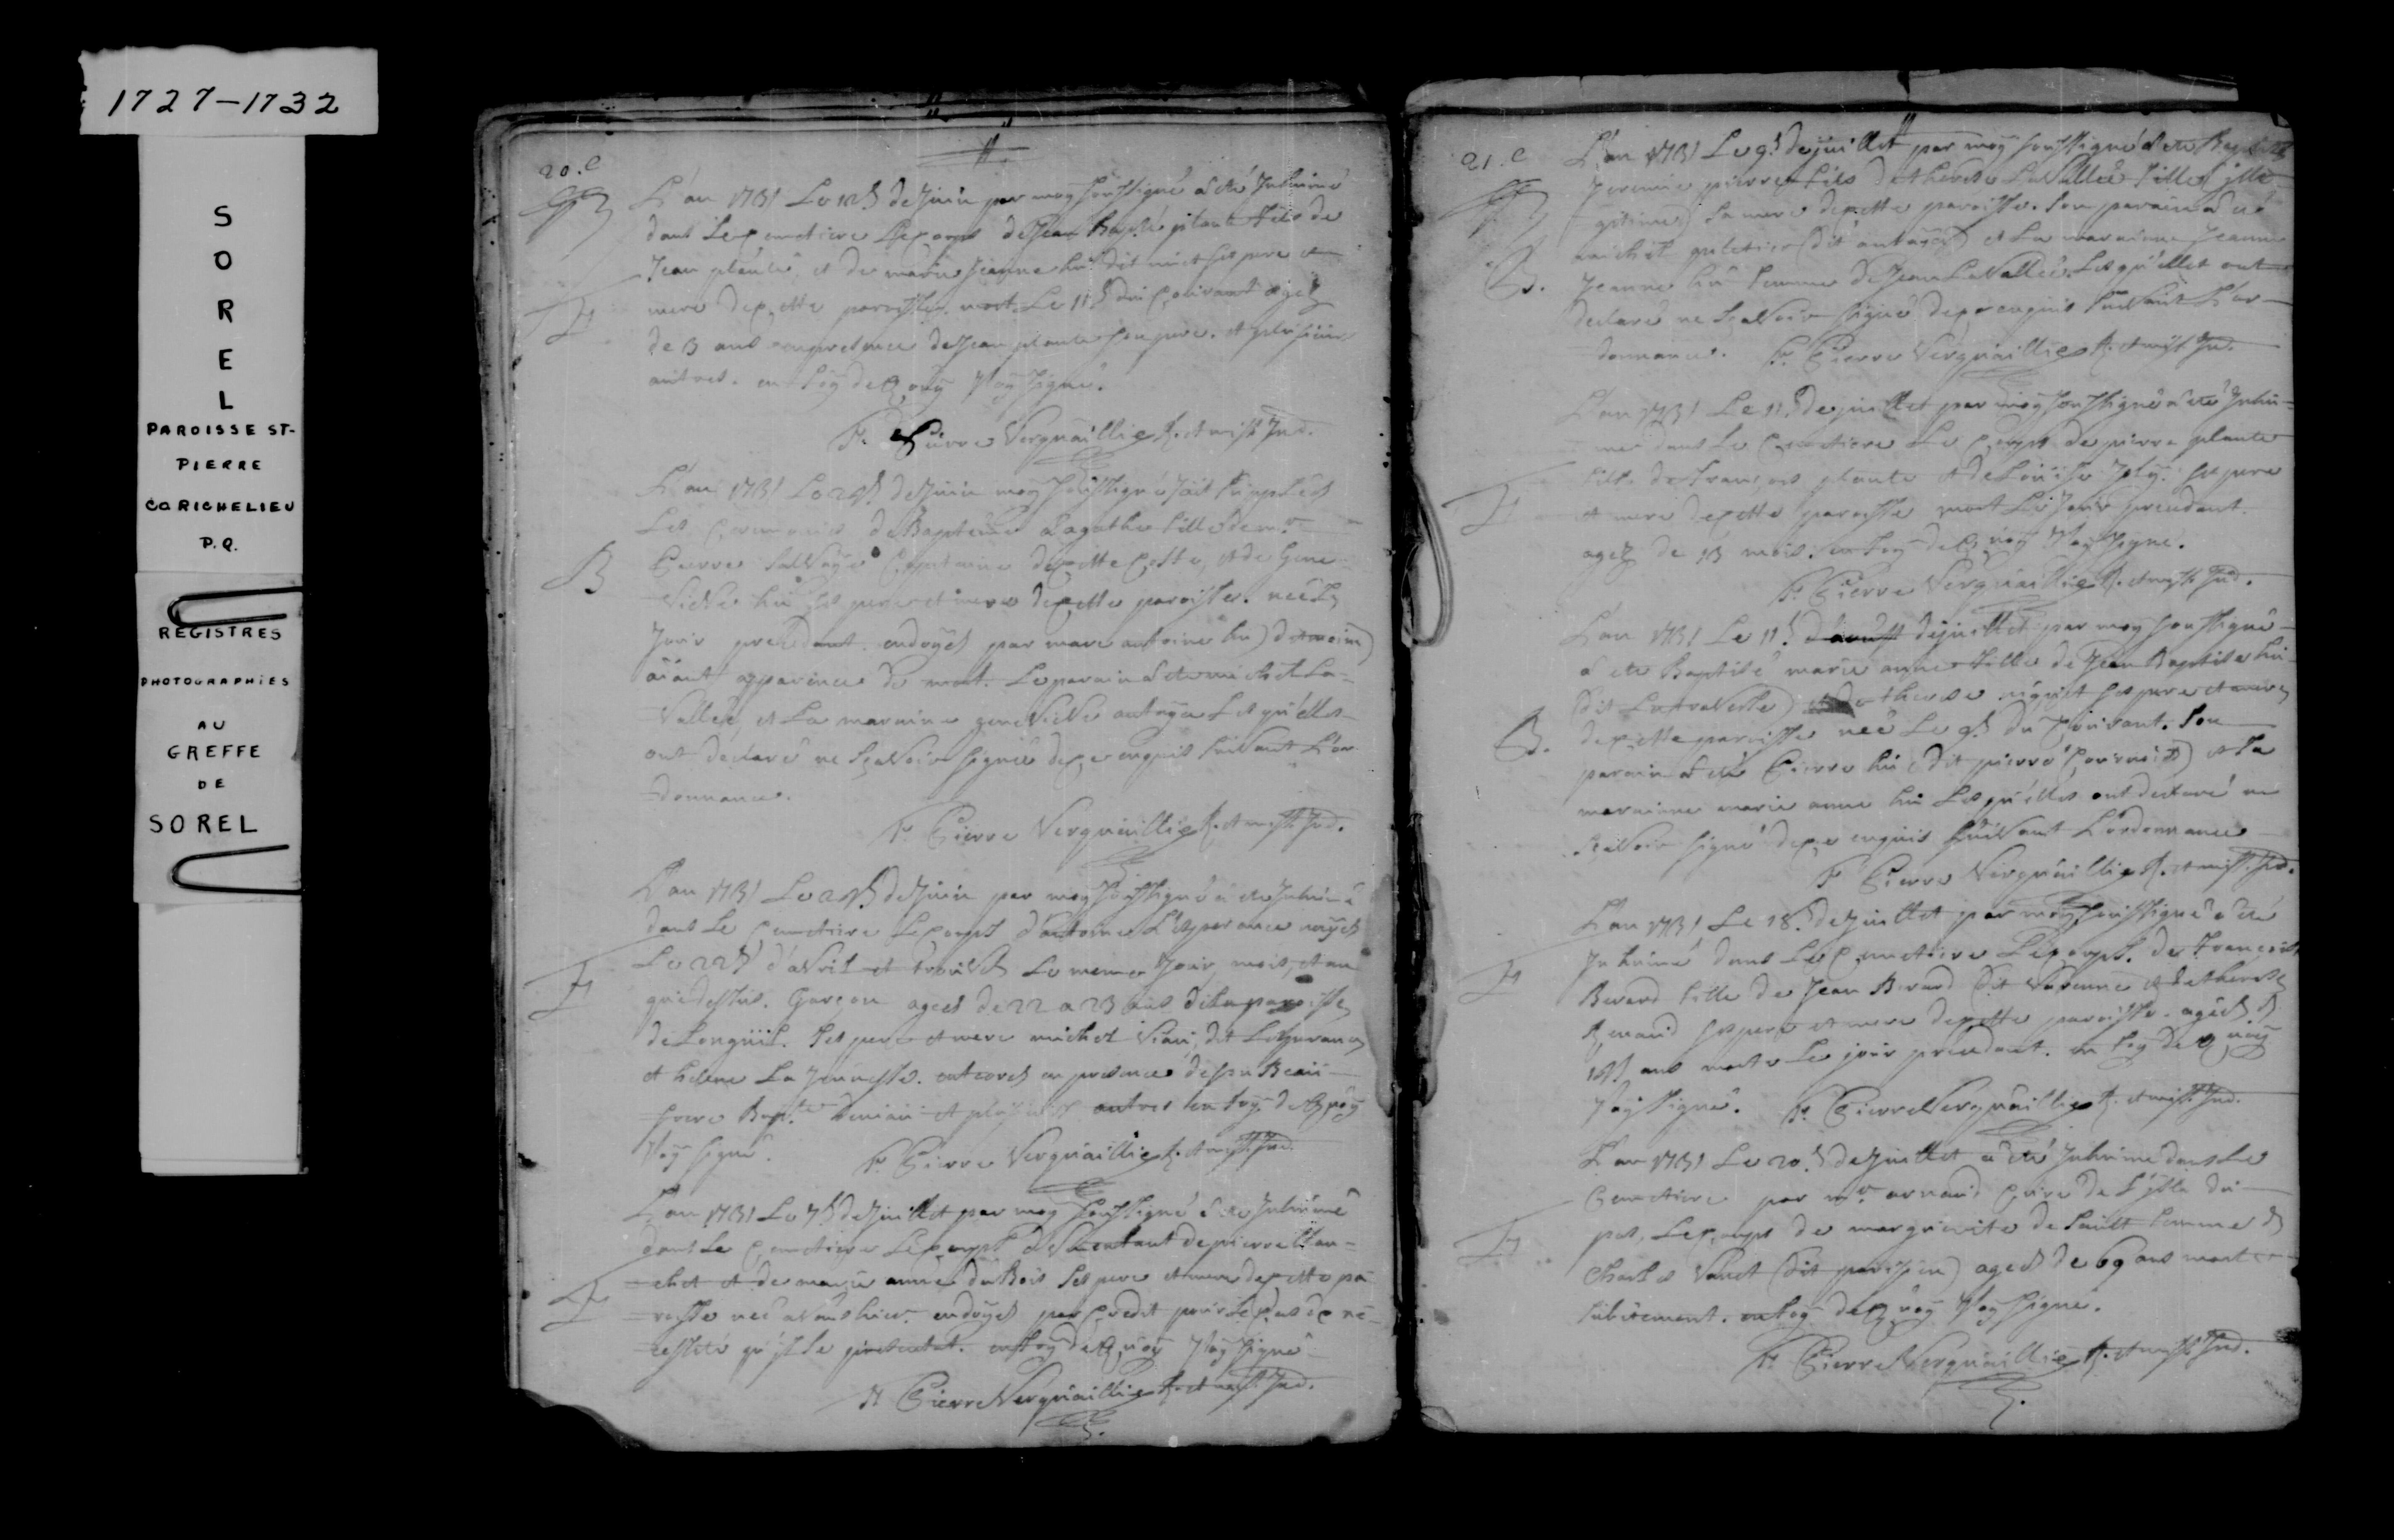 1727-1732
S
O
R
E
L
PAROISSE ST-
PIERRE
CO RICHELIEU
P.Q.
REGISTRES
PHOTOGRAPHIÉS
AU
GREFFE
DE
SOREL
20.e
L'an 1731 Le 12e de Juin par moy soussigné a été Inhumé
dans Le cemetiere Le corps de Jean Bapte plante fils de
Jean plante et de marie Jeanne hu dit ses pere et
mere de cette paroisse mort Le 11e du courant agez
de 3 ans en presence de Jean plante son pere. et plusieurs
autres. en foy de quoy J'ay signé.
Fr. Pierre Verquaillie R. et miss. Ind.
L'an 1731 Le de Juin moy soussigné J'ait suppleez
Les ceremonies de Baptême a agathe fille de mr
B
Pierre Salvaye Capitaine de cette Coste, et de Gene-
vieve hu ses pere et mere de cette paroisse. neé Le
Jour precedant. endoyez par marc antoine hu)
aiant apparence de mort. Le parain a ete michel La-
vallee, et La maraine genevieve antaya Lesquelles
ont declaré ne sçavoir signé de ce enquis suivant L'or-
donnance.
Fr. Pierre Verquaillie R. et miss. Ind.
L'an 1731 Le de Juin par moy soussigné a ete Inhumé
dans Le cemetiere Le corps d'antoine L'esperance noyez
Le 22e d'avril et trouvez Le meme Jour, mois, et an
que dessus. Garçon agez de 22 a 23 ans de La paroisse
de Longuil. ses pere et mere michel viau, dit L'esperance
et helene La Jeunesse. enterez en presence de son Beau-
frere Bapte et plusieurs autres en foy de quoy
J'ay signé. Fr. Pierre Verquaillie R. et miss. Ind.
L'an 1731 Le 7e de Juillet par moy soussigné a ete Inhumé
dans Le cemetiere Le corps de L'enfant de pierre
et de marie anne du Bois ses pere et mere de cette pa-
roisse neé avanthier. endoyez par
en foy de quoy J'ay signé
Fr Pierre Verquaillie R. et miss. Ind.
21.e
L'an 1731 Le 9e de juillet par moy soussigné a ete Baptisé
Jeremie pierre fils de therese LaValleé fille
gitime) sa mere de cette paroisse. son parain a eté
michel peletier (dit antaya) et La maraine Jeanne
B.
Jeanne hu femme de Jean LaValleé. Lesquelles ont
declaré ne sçavoir signé de ce enquis suivant L'or-
donnance. Fr. Pierre Verquaillie R. et miss. Ind.
L'an 1731 Le 11e de juillet par moy soussigné a ete Inhu-
mé dans Le cemetiere Le corps de pierre plante
fils de François plante et de Louise Joly. ses pere
et mere de cette paroisse mort Le Jour precedant.
agez de 13 mois. en foy de quoy J'ay signé.
Fr. Pierre Verquaillie R. et miss. Ind.
L'an 1731 Le 11e d'aoust dejuillet par moy soussigné
a ete Baptisé marie anne fille de Jean Baptiste hu
(dit Latraverse) et de therese ses pere et mere
B.
de cette paroisse neé Le 9e du courant. son
parain a eté Pierre hu (dit pierre Cournois) et sa
maraine marie anne hu Lesquelles ont declaré ne
sçavoir signé de ce enquis suivant L'ordonnance
Fr Pierre Verquaillie R. et miss. Ind.
L'an 1731 Le 18e de Juillet par moy soussigné a eté
Inhumé dans Le cemetiere Le corps. de François
Berard fille de Jean Berard (dit et de therese
Renaud ses pere et mere de cette paroisse. agez de
ans morte Le jour precedant. en foy de quoy
J'ay signé. Fr. Pierre Verquaillie R. et miss. Ind.
L'an 1731 Le 20e de Juillet a eté Inhumé dans Le
Cemetiere par mr. arnaud curé de L'isle du
pas, Le corps de marguerite de Sault femme de
Charles Vanet (dit parisien) agez de 69 ans morte
subitement. en foy de quoy J'ay signé.
Fr. Pierre Verquaillie R. et miss. Ind.